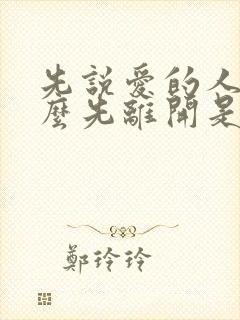 先說愛的人
麼先離開是
鄭玲玲